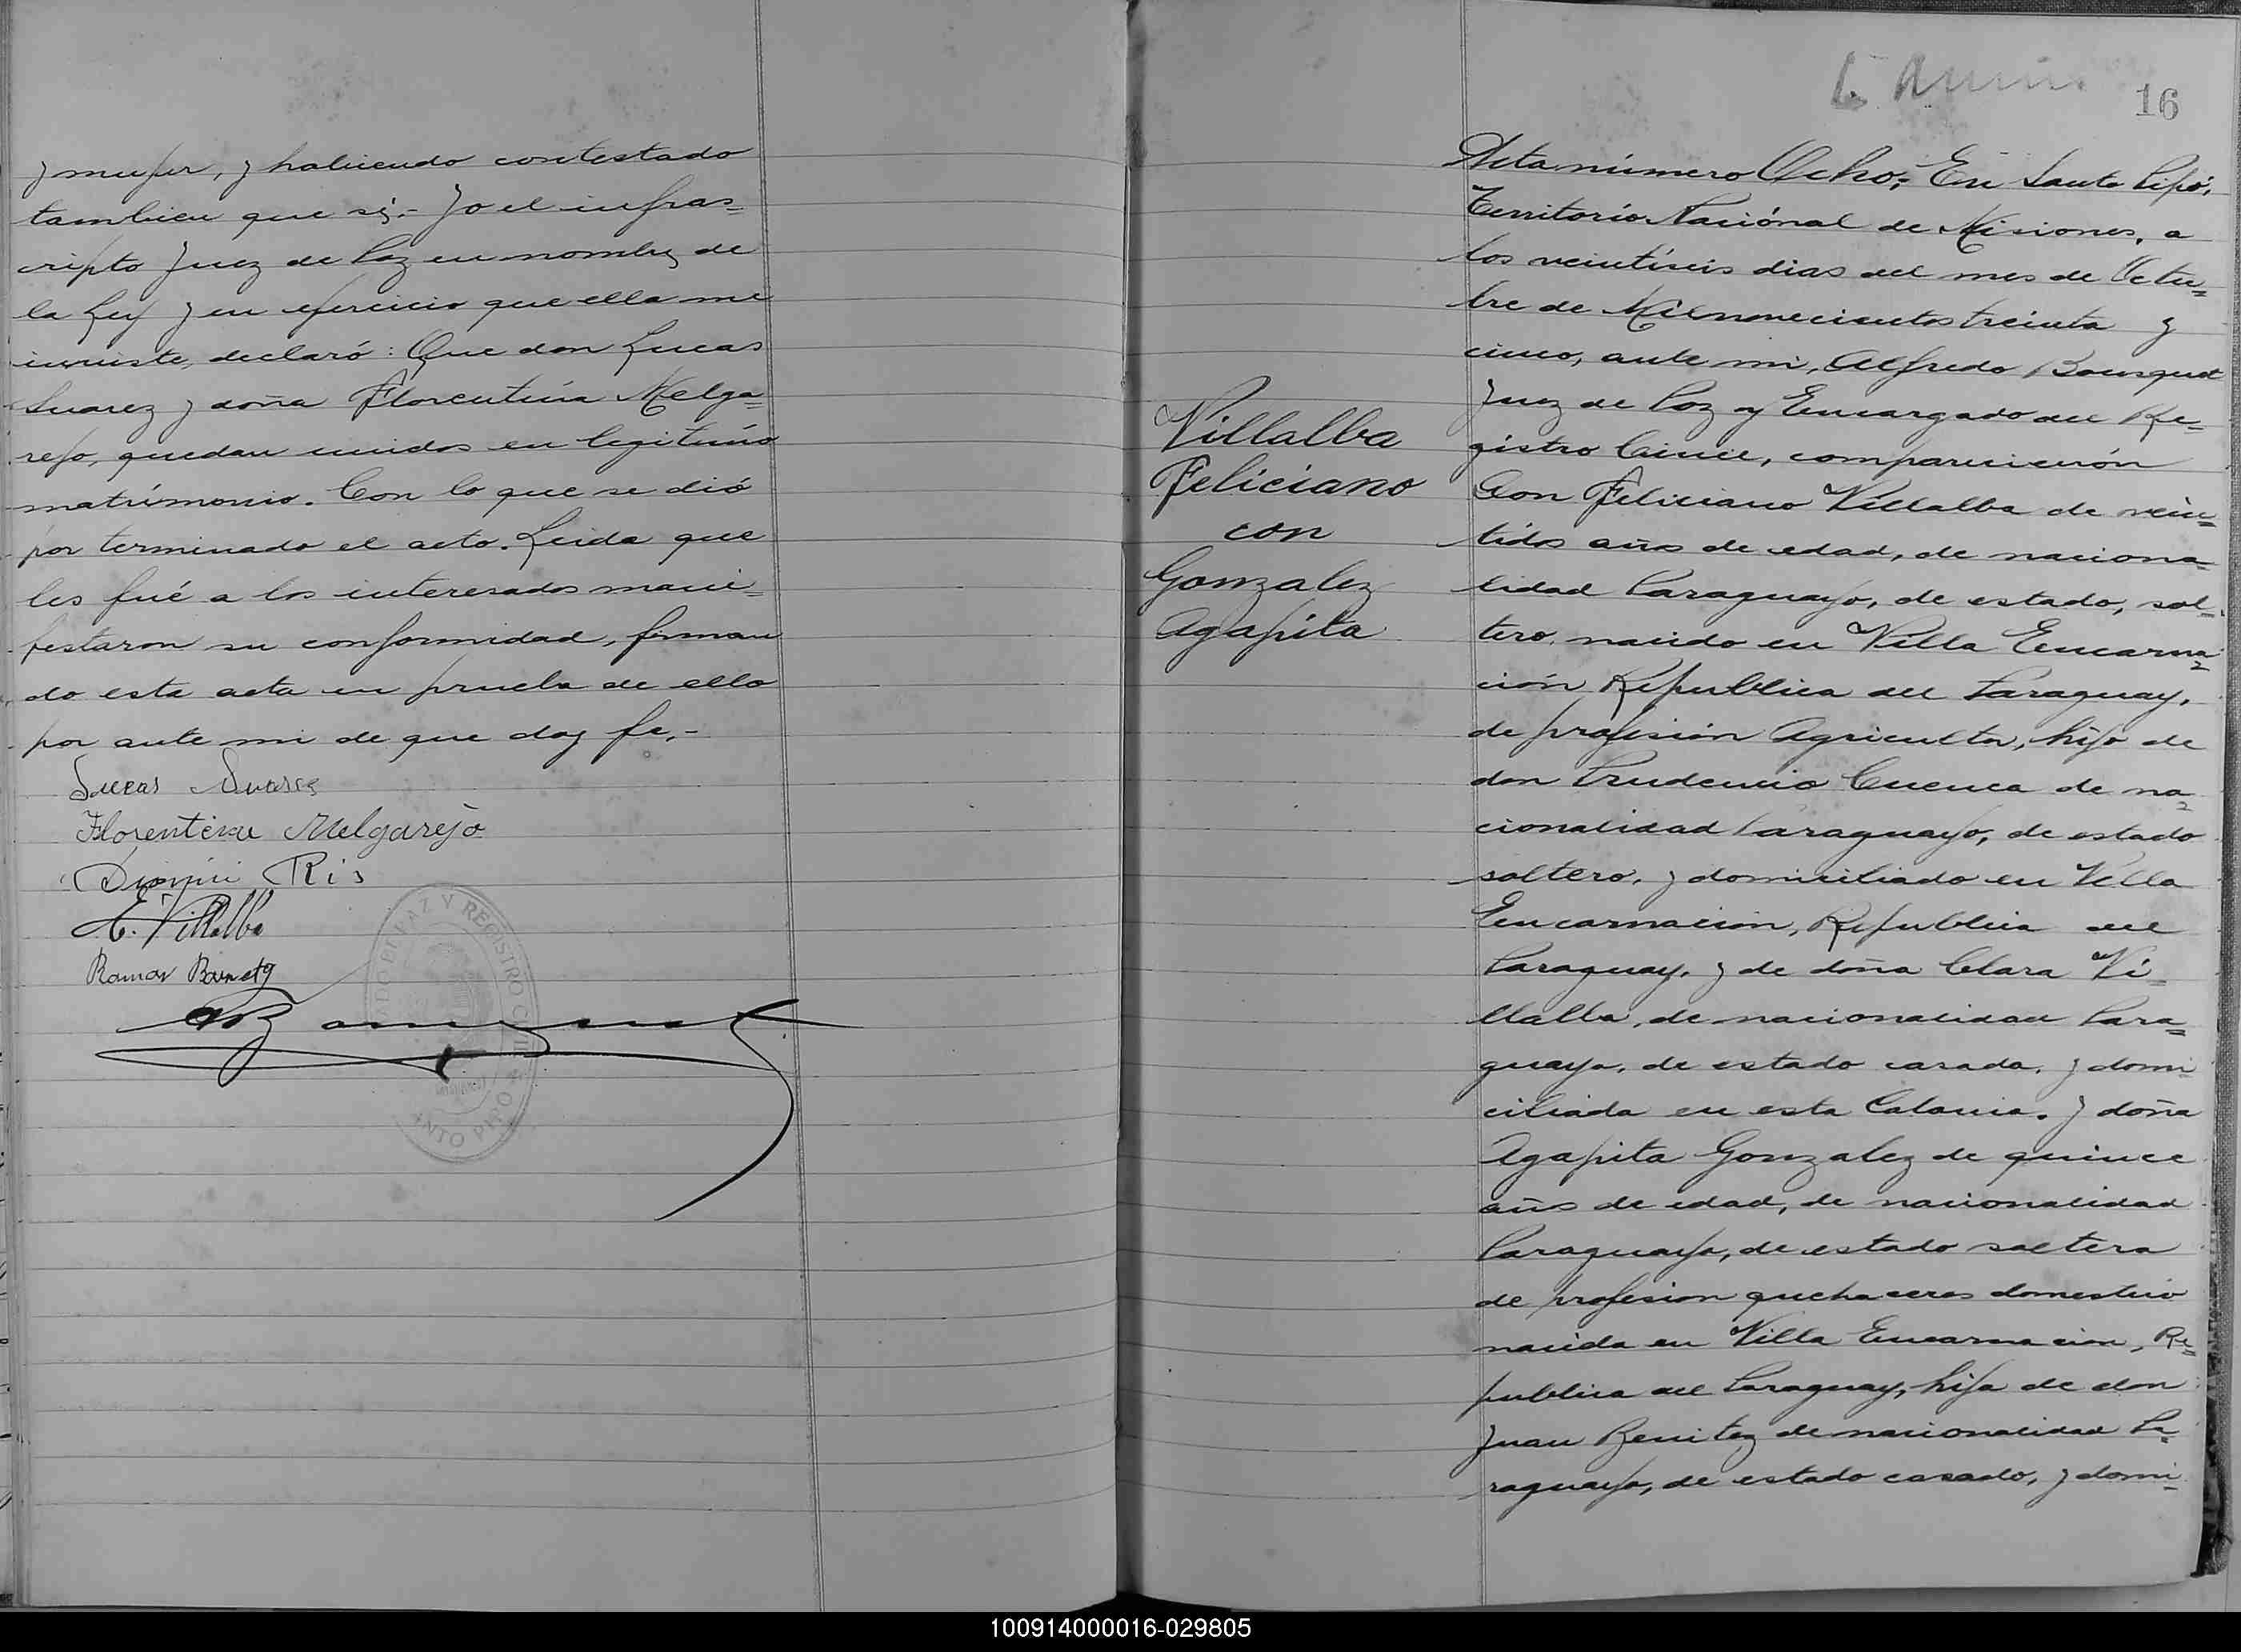 y mujer, y habiendo contestado
tambien que si.- Yo el infras=
cripto Juez de Paz en nombre de
la Ley y en ejercicio que ella me
inviste, declaró: Que don Lucas
Suarez y doña Florentina Melga=
rejo, quedan unidos en legitimo
matrimonio. Con lo que se dió
por terminado el acto. Leida que
les fué a los interesados mani=
festaron su conformidad, firman
do esta acta en prueba de ello
por ante mi de que doy fe,-
Lucas Suarez
Florentina Melgarejo
Ris
E. Villalba
Ramon
PAZ Y REGISTRO CIVIL
SANTO PIPO
16
Acta número Ocho: En Santo Pipó,
Territorio Naciónal de Misiones, a
los veintiseis dias del mes de Octu=
bre de Milnovecientos treinta y
cinco, ante mi, Alfredo Bousquet
Juez de Paz y Encargado del Re=
gistro Civil, comparecierón
Don Feliciano Villalba de vein=
tidos años de edad, de naciona=
lidad Paraguayo, de estado, sol=
tero, nacido en Villa Encarna=
ción Republica del Paraguay,
de profesión Agricultor, hijo de
don Prudencio Cuenca de na=
cionalidad Paraguayo, de estado
soltero, y domiciliado en Villa
Encarnacion, Republica del
Paraguay, y de doña Clara Vi=
llalba, de nacionalidad Para=
guaya, de estado casada, y domi=
ciliada en esta Colonia. y doña
Agapita Gonzalez de quince
años de edad, de nacionalidad
Paraguaya, de estado soltera
de profesion quehaceres domestico
nacida en Villa Encarnacion, Re=
publica del Paraguay, hija de don
Juan Benitez de nacionalidad Pa=
raguayo, de estado casado, y domi=
Villalba
Feliciano
con
Gonzalez
Agapita
100914000016-029805